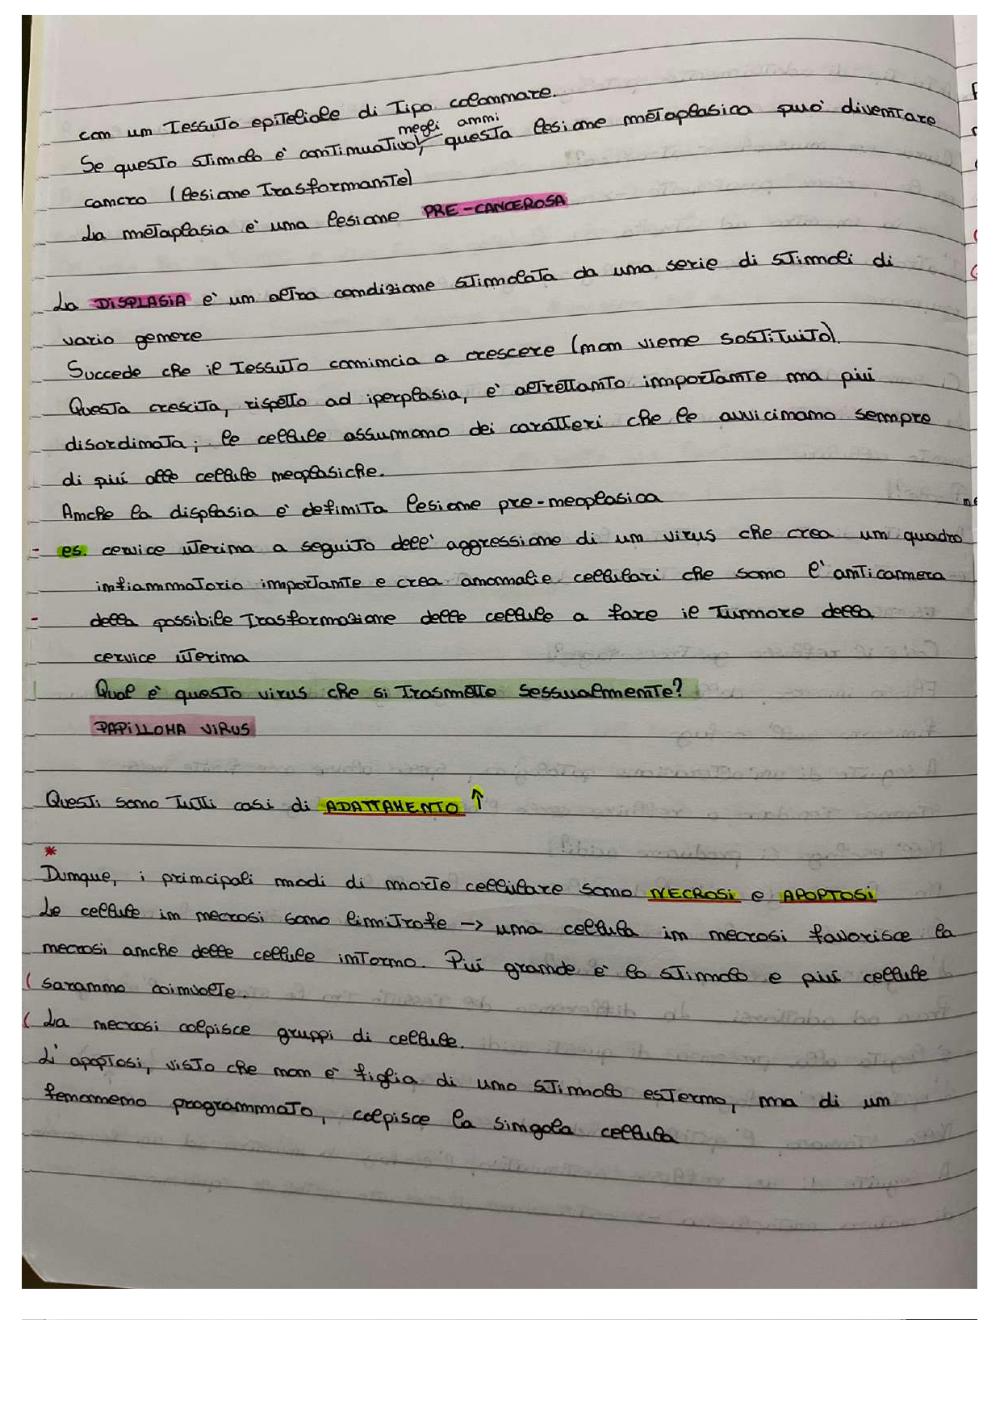 con un tessuto epiteliale di tipo colonnare.
Se questo stimolo è continuativo, negli anni questa lesione metaplasica può diventare
cancro (lesione trasformante)
La metaplasia è una lesione PRE-CANCEROSA
La DISPLASIA è un altra condizione stimolata da una serie di stimoli di
vario genere
Succede che il tessuto comincia a crescere (non viene sostituito).
Questa crescita, rispetto ad iperplasia, è altrettanto importante ma più
disordinata; le cellule assumono dei caratteri che le avvicinano sempre
di più alle cellule neoplasiche.
Anche la displasia è definita lesione pre-neoplasica
- es. cervice uterina a seguito dell'aggressione di un virus che crea un quadro
infiammatorio importante e crea anomalie cellulari che sono l'anticamera
- della possibile trasformazione delle cellule a fare il tumore della
cervice uterina
Qual è questo virus che si trasmette sessualmente?
PAPILLOMA VIRUS
Questi sono tutti casi di ADATTAMENTO ↑
*
Dunque, i principali modi di morte cellulare sono NECROSI e APOPTOSI
Le cellule in necrosi sono limitrofe -> una cellula in necrosi favorisce la
necrosi anche delle cellule intorno. Più grande è lo stimolo e più cellule
( saranno coinvolte.
( La necrosi colpisce gruppi di cellule.
L'apoptosi, visto che non è figlia di uno stimolo esterno, ma di un
fenomeno programmato, colpisce la singola cellula